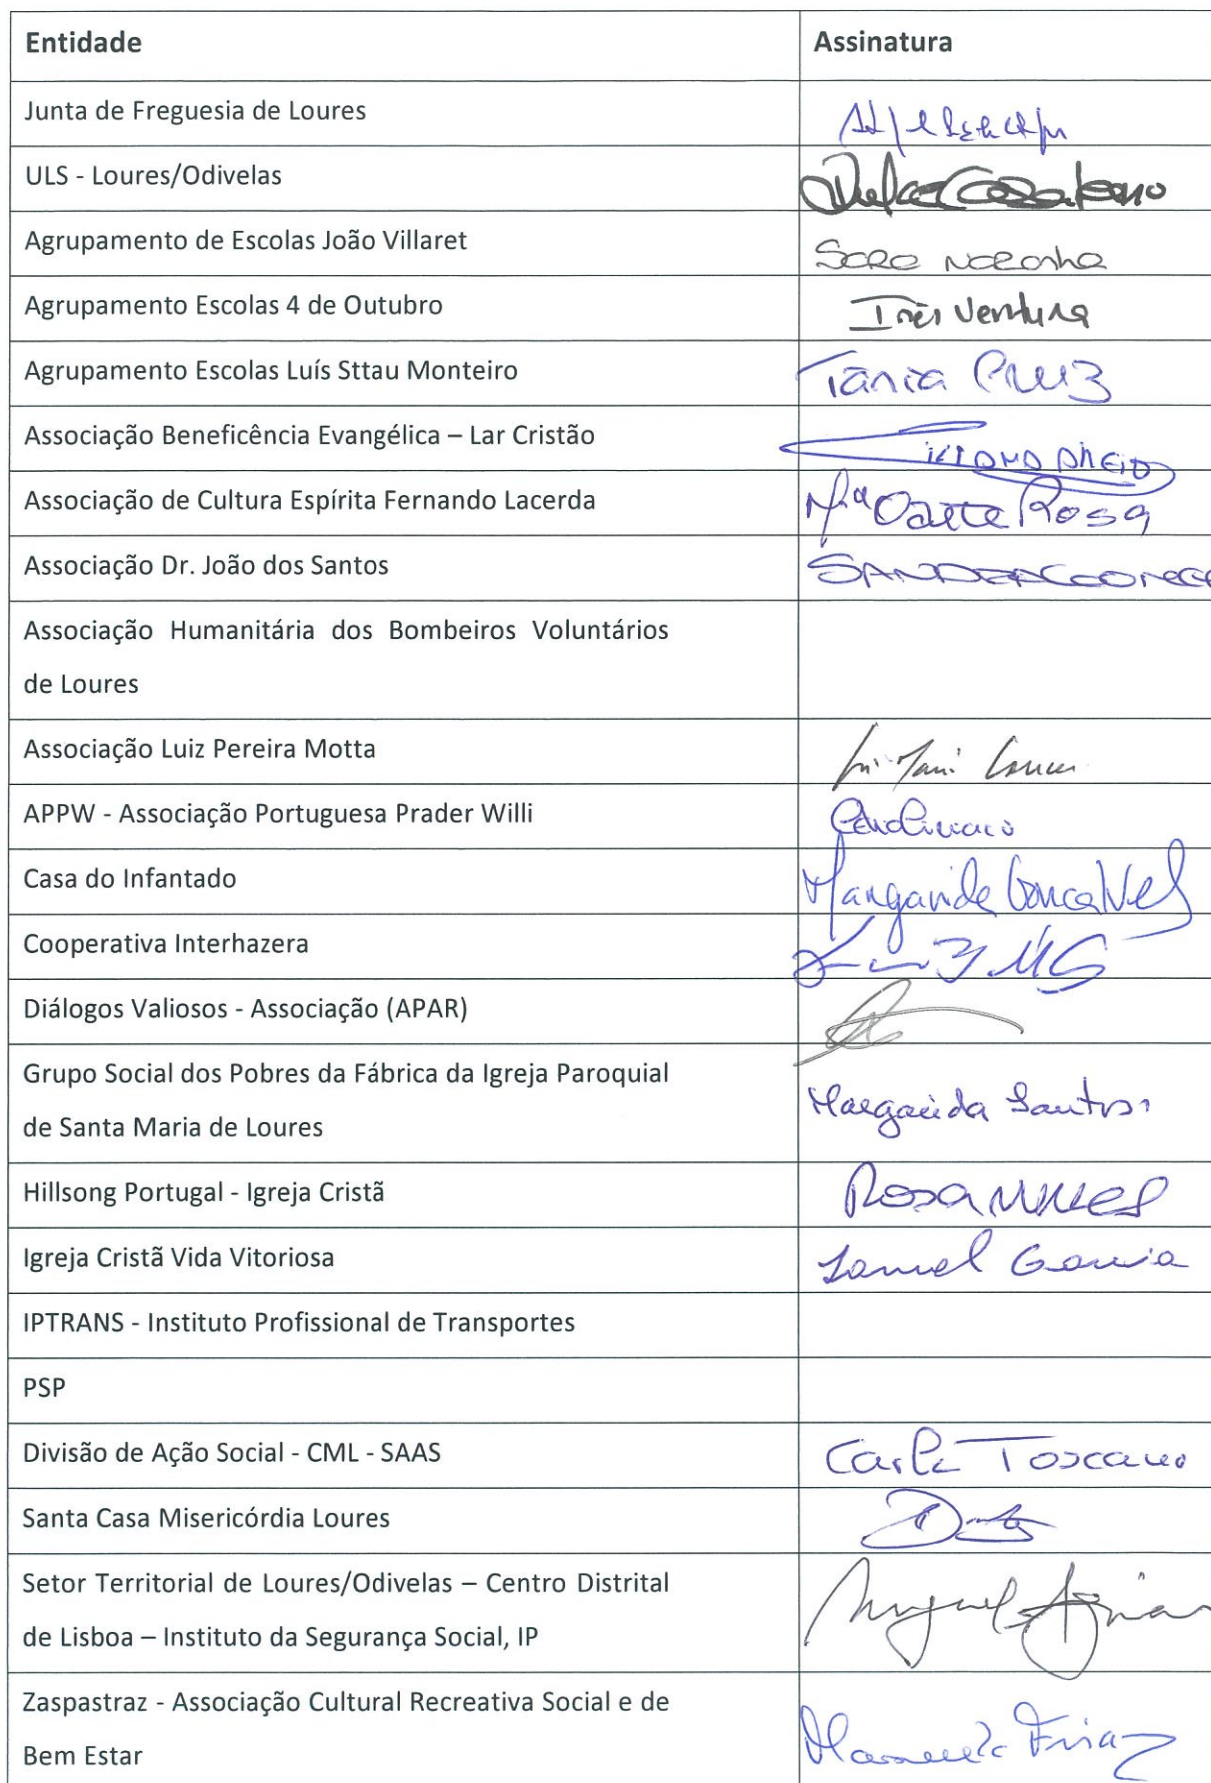 Entidade Assinatura
Junta de Freguesia de Loures
ULS - Loures/Odivelas
Agrupamento de Escolas João Villaret Sara Noronha
Agrupamento Escolas 4 de Outubro Inês Ventura
Agrupamento Escolas Luís Sttau Monteiro Tânia Cruz
Associação Beneficência Evangélica – Lar Cristão
Associação de Cultura Espírita Fernando Lacerda Mª Odete Rosa
Associação Dr. João dos Santos
Associação Humanitária dos Bombeiros Voluntários
de Loures
Associação Luiz Pereira Motta
APPW - Associação Portuguesa Prader Willi
Casa do Infantado Margarida Gonçalves
Cooperativa Interhazera
Diálogos Valiosos - Associação (APAR)
Grupo Social dos Pobres da Fábrica da Igreja Paroquial
de Santa Maria de Loures
Margarida Santos
Hillsong Portugal - Igreja Cristã Rosa Nunes
Igreja Cristã Vida Vitoriosa Samuel Garcia
IPTRANS - Instituto Profissional de Transportes
PSP
Divisão de Ação Social - CML - SAAS Carla Toscano
Santa Casa Misericórdia Loures
Setor Territorial de Loures/Odivelas – Centro Distrital
de Lisboa – Instituto da Segurança Social, IP
Miguel
Zaspastraz - Associação Cultural Recreativa Social e de
Bem Estar